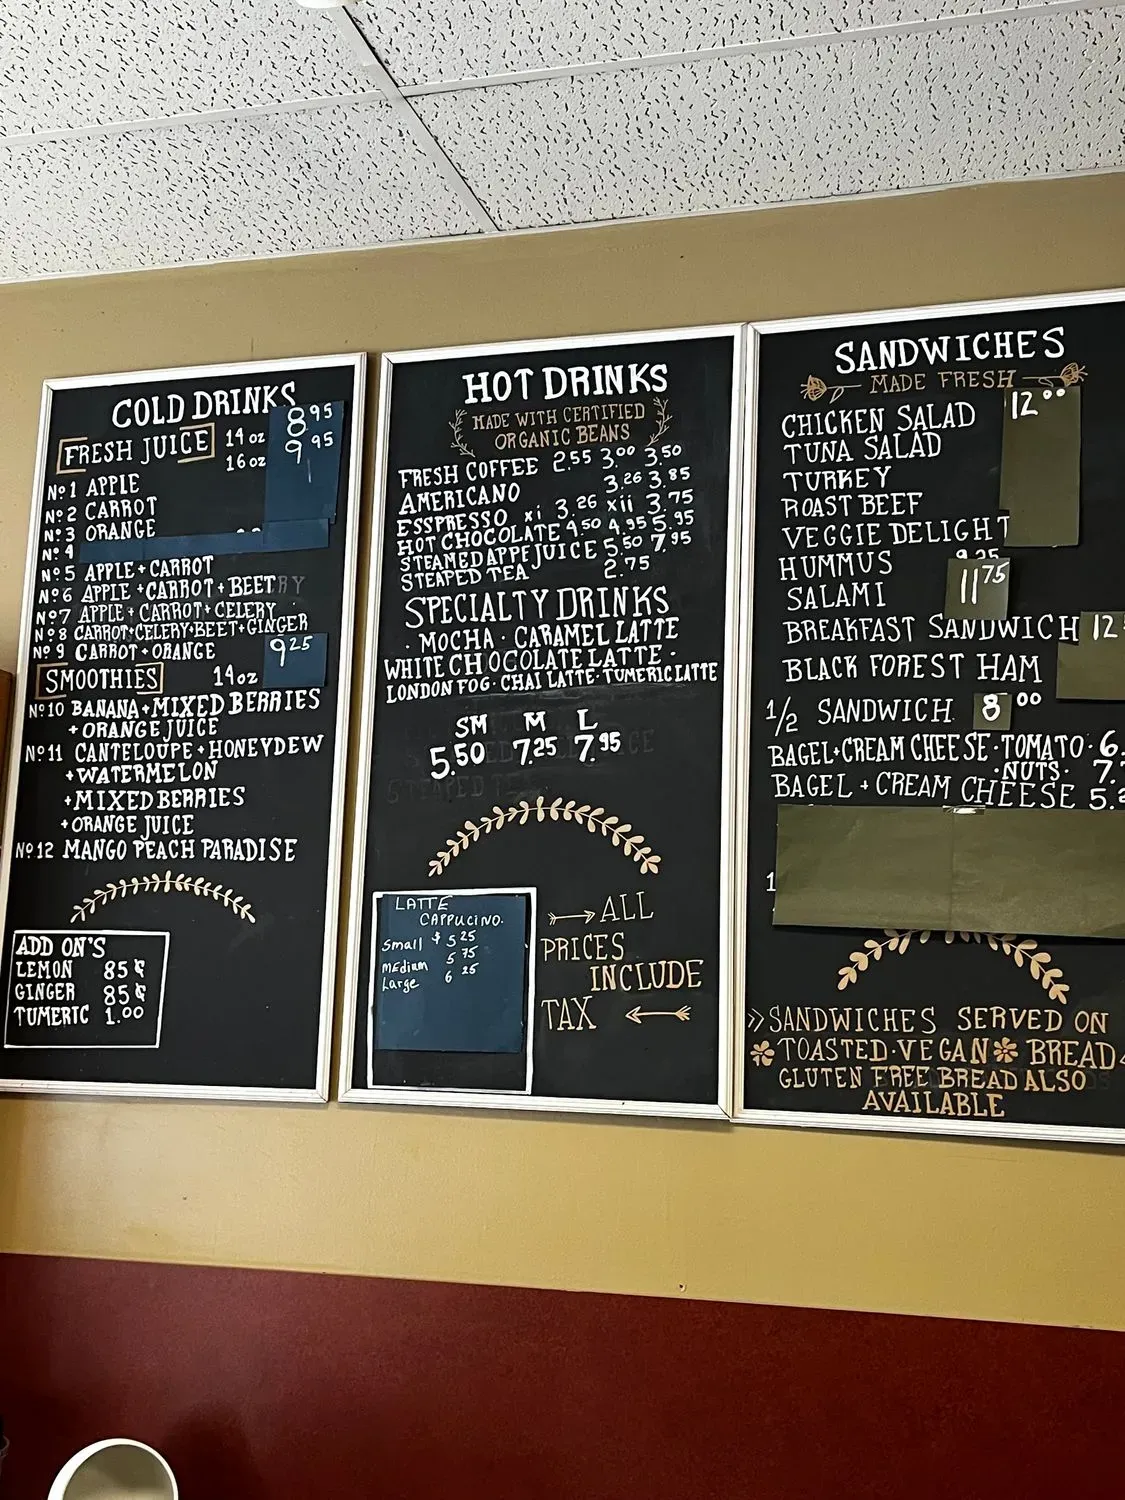 COLD DRINKS
FRESH JUICE 14 oz 8.95
16 oz 9.95
Nº 1 APPLE
Nº 2 CARROT
Nº 3 ORANGE
Nº 4
Nº 5 APPLE + CARROT
Nº 6 APPLE + CARROT + BEET
Nº 7 APPLE + CARROT + CELERY
Nº 8 CARROT + CELERY + BEET + GINGER
Nº 9 CARROT + ORANGE
SMOOTHIES 14 oz 9.25
Nº 10 BANANA + MIXED BERRIES
+ ORANGE JUICE
Nº 11 CANTELOUPE + HONEYDEW
+ WATERMELON
+ MIXED BERRIES
+ ORANGE JUICE
Nº 12 MANGO PEACH PARADISE
ADD ON'S
LEMON 85¢
GINGER 85¢
TUMERIC 1.00
HOT DRINKS
MADE WITH CERTIFIED
ORGANIC BEANS
FRESH COFFEE 2.55 3.00 3.50
AMERICANO 3.26 3.85
ESSPRESSO xi 3.26 xii 3.75
HOT CHOCOLATE 4.50 4.95 5.95
STEAMED APPE JUICE 5.50 7.95
STEAPED TEA 2.75
SPECIALTY DRINKS
· MOCHA · CARAMEL LATTE
WHITE CHOCOLATE LATTE ·
LONDON FOG · CHAI LATTE · TUMERIC LATTE
SM M L
5.50 7.25 7.95
LATTE
CAPPUCINO.
Small $ 5 25
mEdium 5 75
Large 6 25
ALL
PRICES
INCLUDE
TAX
SANDWICHES
MADE FRESH
CHICKEN SALAD 12 00
TUNA SALAD
TURKEY
ROAST BEEF
VEGGIE DELIGHT
HUMMUS
SALAMI 11 75
BREAKFAST SANDWICH 12
BLACK FOREST HAM
1/2 SANDWICH 8 00
BAGEL + CREAM CHEESE · TOMATO · 6.
· NUTS · 7.
BAGEL + CREAM CHEESE 5.
1
SANDWICHES SERVED ON
TOASTED · VEGAN BREAD
GLUTEN FREE BREAD ALSO
AVAILABLE